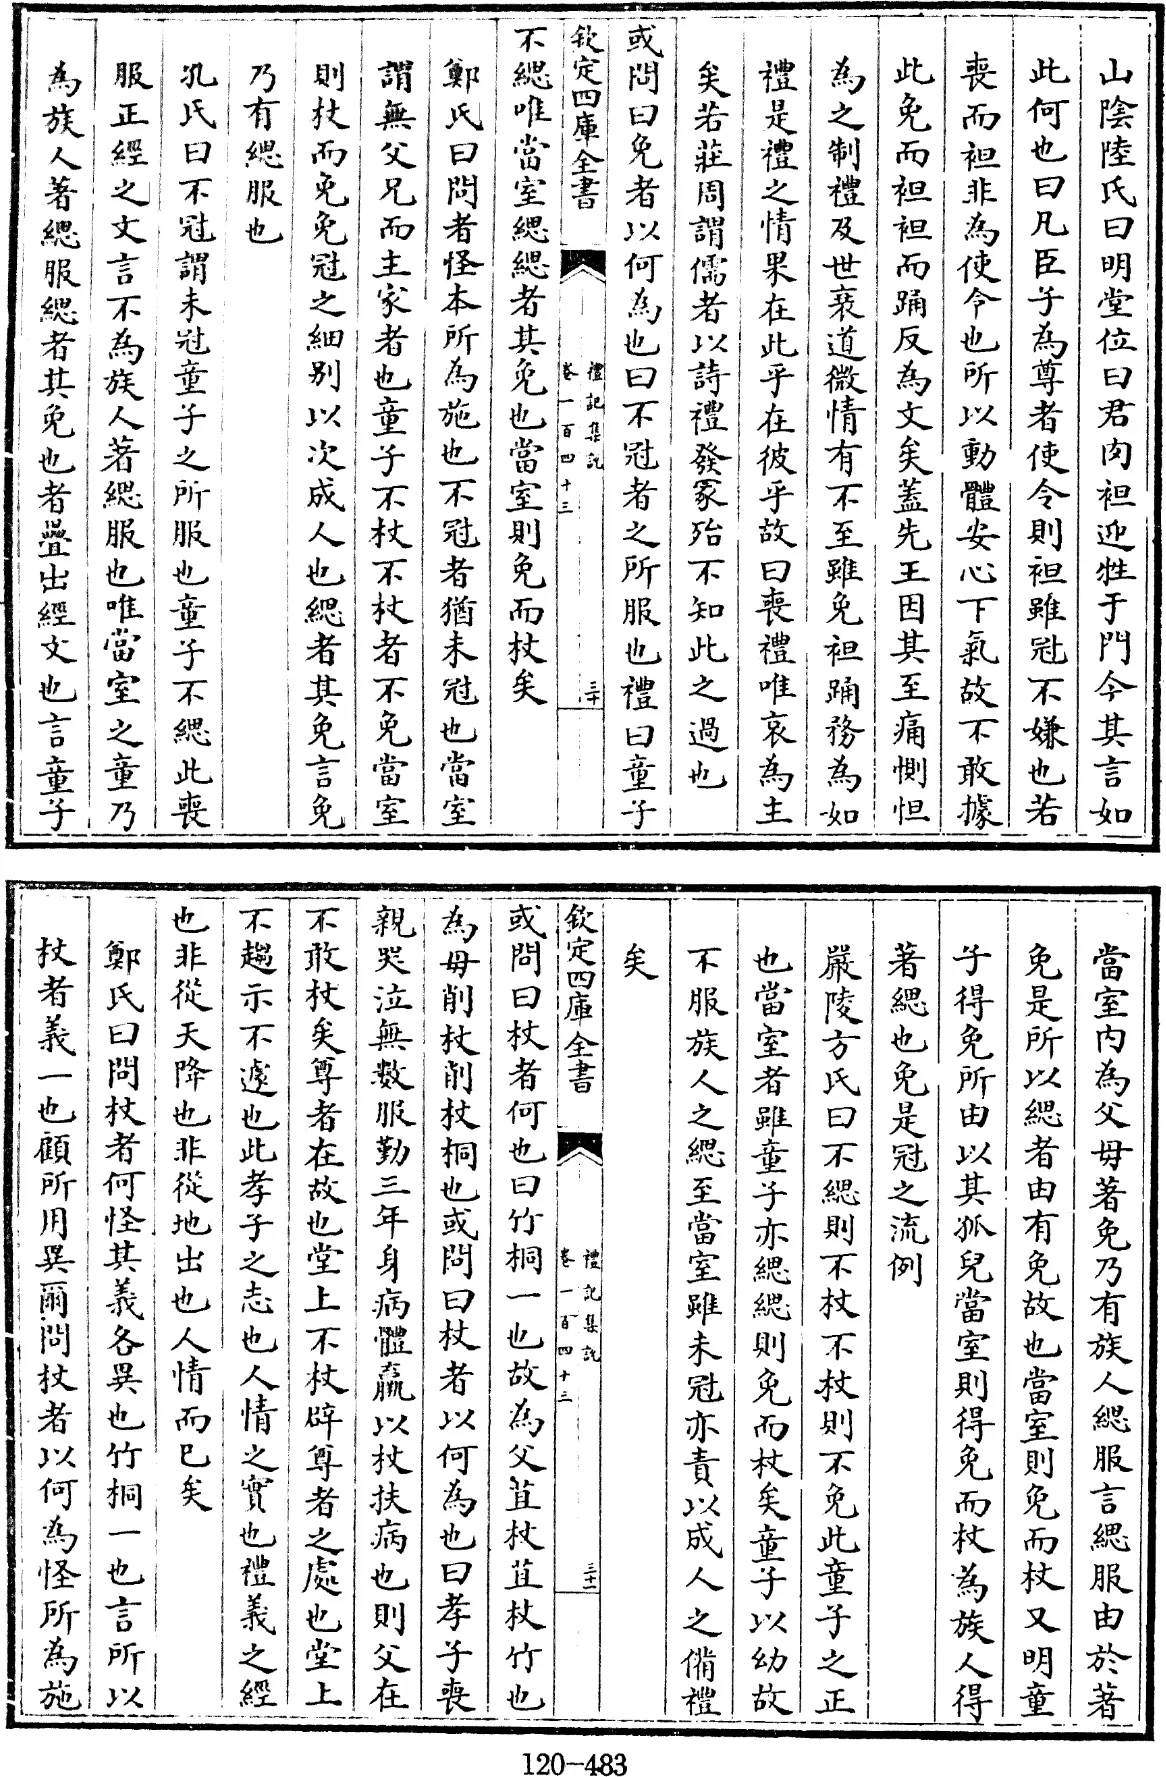 山陰陸氏曰明堂位曰君肉袒迎牲于門今其言如
此何也曰凡臣子為尊者使令則袒雖冠不嫌也若
喪而袒非為使令也所以動體安心下氣故不敢據
此免而袒袒而踊反為文矣蓋先王因其至痛惻怛
為之制禮及世衰道微情有不至雖免袒踊務為如
禮是禮之情果在此乎在彼乎故曰喪禮唯哀為主
矣若莊周謂儒者以詩禮發冢殆不知此之過也
或問曰免者以何為也曰不冠者之所服也禮曰童子
欽定四庫全書
禮記集說
卷一百四十三
三十
不緦唯當室緦緦者其免也當室則免而杖矣
鄭氏曰問者怪本所為施也不冠者猶未冠也當室
謂無父兄而主家者也童子不杖不杖者不免當室
則杖而免免冠之細别以次成人也緦者其免言免
乃有緦服也
孔氏曰不冠謂未冠童子之所服也童子不緦此喪
服正經之文言不為族人著緦服也唯當室之童乃
為族人著緦服緦者其免也者疊出經文也言童子
當室内為父母著免乃有族人緦服言緦服由於著
免是所以緦者由有免故也當室則免而杖又明童
子得免所由以其孤兒當室則得免而杖為族人得
著緦也免是冠之流例
嚴陵方氏曰不緦則不杖不杖則不免此童子之正
也當室者雖童子亦緦緦則免而杖矣童子以幼故
不服族人之緦至當室雖未冠亦責以成人之備禮
矣
欽定四庫全書
禮記集說
卷一百四十三
三十一
或問曰杖者何也曰竹桐一也故為父苴杖苴杖竹也
為母削杖削杖桐也或問曰杖者以何為也曰孝子喪
親哭泣無數服勤三年身病體羸以杖扶病也則父在
不敢杖矣尊者在故也堂上不杖辟尊者之處也堂上
不趨示不遽也此孝子之志也人情之實也禮義之經
也非從天降也非從地出也人情而已矣
鄭氏曰問杖者何怪其義各異也竹桐一也言所以
杖者義一也顧所用異爾問杖者以何為怪所為施
120-483